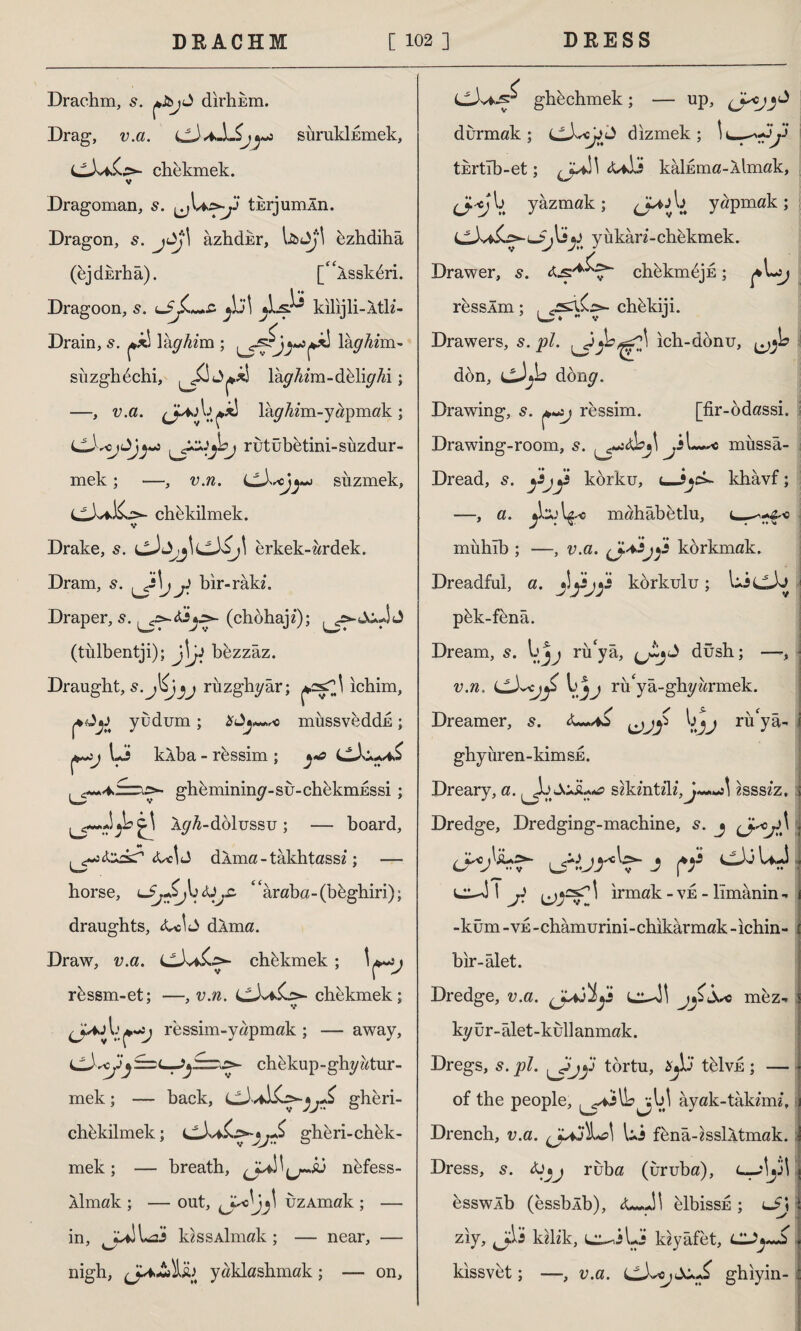 DRACHM [ 102 ] DRESS
Drachm, s. درهم dìrhᴇm.
Drag, v.a. سوروكلمك sùruklᴇmek,
چكمك chèkmek.
Dragoman, s. ترجمان tᴇrjumᴀn.
Dragon, s. اژدر àzhdᴇr, اژدها èzhdihā
(èjdᴇrhā). [“ᴀsskéri.
Dragoon, s. قليجلى آتلى عسكرى kìlijli-ᴀtlì-
Drain, s. لغم làghim ; لغم سوزكجى làghim-
sùzghéchi, لغم دلكى làghim-dèlighi ;
—, v.a. لغم ياپمق làghim-yàpmak ;
رطوبتنى سوزدرمك rùtūbètini-sùzdur-
mek ; —, v.n. سوزمك sùzmek,
چكلمك chèkilmek.
Drake, s. اركك اوردك èrkek-ùrdek.
Dram, s. بر راقى bìr-ràkì.
Draper, s. چوقه جى (chòhajì); دلبندجى
(tùlbentji); بزاز bèzzāz.
Draught, s. روزكار rùzghyār; ايچيم ìchim,
يودم yùdum ; مسوده mùssvèddᴇ ;
قبا رسم kᴀba - rèssim ; كمينك صو
چكمسى ghèmining-sù-chèkmᴇssi ;
آغ طولوسى ᴀgh-dòlussu ; — board,
دامه تخته سى dᴀma-tàkhtassi ; —
horse, عربه باركيرى “àraba-(bèghiri);
draughts, دامه dᴀma.
Draw, v.a. چكمك chèkmek ; رسم ا
rèssm-et; —, v.n. چكمك chèkmek ;
رسم ياپمق rèssim-yàpmak ; — away,
چكوب كوتورمك chèkup-ghyùtur-
mek ; — back, كرى چكلمك ghèri-
chèkilmek ; كرى چكمك ghèri-chèk-
mek ; — breath, نفس آلمق nèfess-
ᴀlmak ; — out, اوزامق ùzᴀmak ; —
in, قصالمق kìssᴀlmak ; — near, —
nigh, ياقلاشمق yàklashmak ; — on,
كچمك ghèchmek ; — up, دورمق
dùrmak ; ديزمك dìzmek ; ترتيب ا
tᴇrtīb-et ; قلمه آلمق kàlᴇma-ᴀlmak,
يازمق yàzmak ; ياپمق yàpmak ;
يوقارى چكمك yùkàrì-chèkmek.
Drawer, s. چكمجه chèkméjᴇ ; رسام
rèssᴀm ; چكيجى chèkiji.
Drawers, s. pl. ايچ طونى ìch-dònu, طون
dòn, طوڭ dòng.
Drawing, s. رسم rèssim. [fìr-òdassi.
Drawing-room, s. مسافر اوطه سى mùssā-
Dread, s. قورقو kòrku, خوف khàvf ;
—, a. مهابتلو màhābètlu, مهيب
mùhīb ; —, v.a. قورقمق kòrkmak.
Dreadful, a. قورقولو kòrkulu ; پك فنا
pèk-fènā.
Dream, s. رويا rù‘yā, دوش dùsh; —,
v.n. رويا كورمك rù‘yā-ghyùrmek.
Dreamer, s. رويا كورن كمسه rù‘yā-
ghyùren-kimsᴇ.
Dreary, a. صقندىلى sìkìntìlì, اسسز ìsssìz.
Dredge, Dredging-machine, s. ايرمق و
ليمانك قوم و چامورينى چيقارمق
ايچون بر آلت ìrmak - vᴇ - līmànin-
-kùm-vᴇ-chàmurini-chìkàrmak-ìchin-
bìr-ālet.
Dredge, v.a. مذكور آلت قوللانمق mèz-
kyūr-ālet-kùllanmak.
Dregs, s. pl. تورتو tòrtu, تلوه tèlvᴇ ; —
of the people, اياق طاقمى àyak-tàkìmì.
Drench, v.a. فنا اصلاتمق fènā-ìsslᴀtmak.
Dress, s. روبه rùba (ùruba), اثواب
èsswᴀb (èssbᴀb), البسه èlbissᴇ ; زى
zìy, قلق kìlìk, قيافت kìyāfèt, كسوت
kìssvèt ; —, v.a. كيندرمك ghìyin-